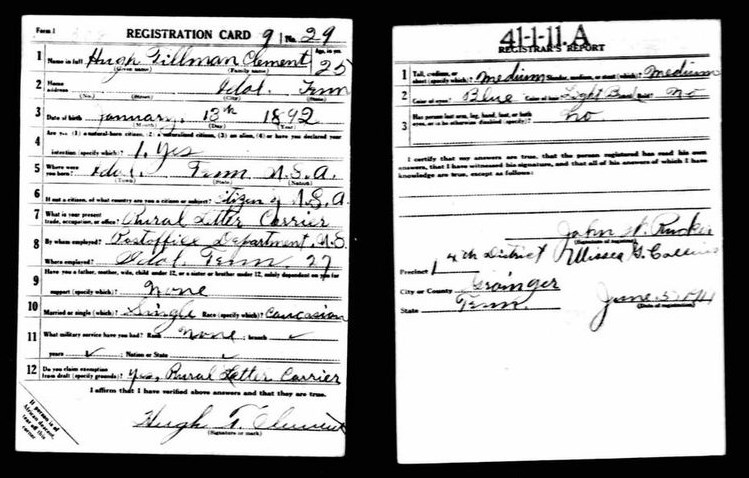 Form 1
REGISTRATION CARD 91 No. 29
1 Name in full Hugh Tillman Clement Age, in yrs. 25
(Given name) (Family name)
2 Home address Idol, Tenn
(No.) (Street) (City) (State)
3 Date of birth January, 13th 1892
(Month) (Day) (Year)
4 Are you (1) a natural-born citizen, (2) a naturalized citizen, (3) an alien, (4) or have you declared your
intention (specify which)? 1. Yes
5 Where were you born? Idol, Tenn U.S.A.
(Town) (State) (Nation)
6 If not a citizen, of what country are you a citizen or subject? Citizen of U.S.A
7 What is your present trade, occupation, or office? Rural Letter Carrier
8 By whom employed? Postoffice Department, U.S.
Where employed? Idol, Tenn. 27
9 Have you a father, mother, wife, child under 12, or a sister or brother under 12, solely dependent on you for
support (specify which)? None
10 Married or single (which)? Single Race (specify which)? Caucasian
11 What military service have you had? Rank None ; branch ✓
years ✓ ; Nation or State ✓
12 Do you claim exemption from draft (specify grounds)? Yes, Rural Letter Carrier
I affirm that I have verified above answers and that they are true.
Hugh T. Clement
(Signature or mark)
If person is of
African descent,
tear off this
corner
41-1-11. A
REGISTRAR'S REPORT
1 Tall, medium, or short (specify which)? Medium Slender, medium, or stout (which)? Medium
2 Color of eyes? Blue Color of hair? Light Bald? No
3 Has person lost arm, leg, hand, foot, or both
eyes, or is he otherwise disabled (specify)? No
I certify that my answers are true, that the person registered has read his own
answers, that I have witnessed his signature, and that all of his answers of which I
have knowledge are true, except as follows:
John W. Rucker
(Signature of registrar)
Ulisses G. Collins
Precinct 4th District
City or County Grainger
State Tenn.
June 5,
(Date of registration)